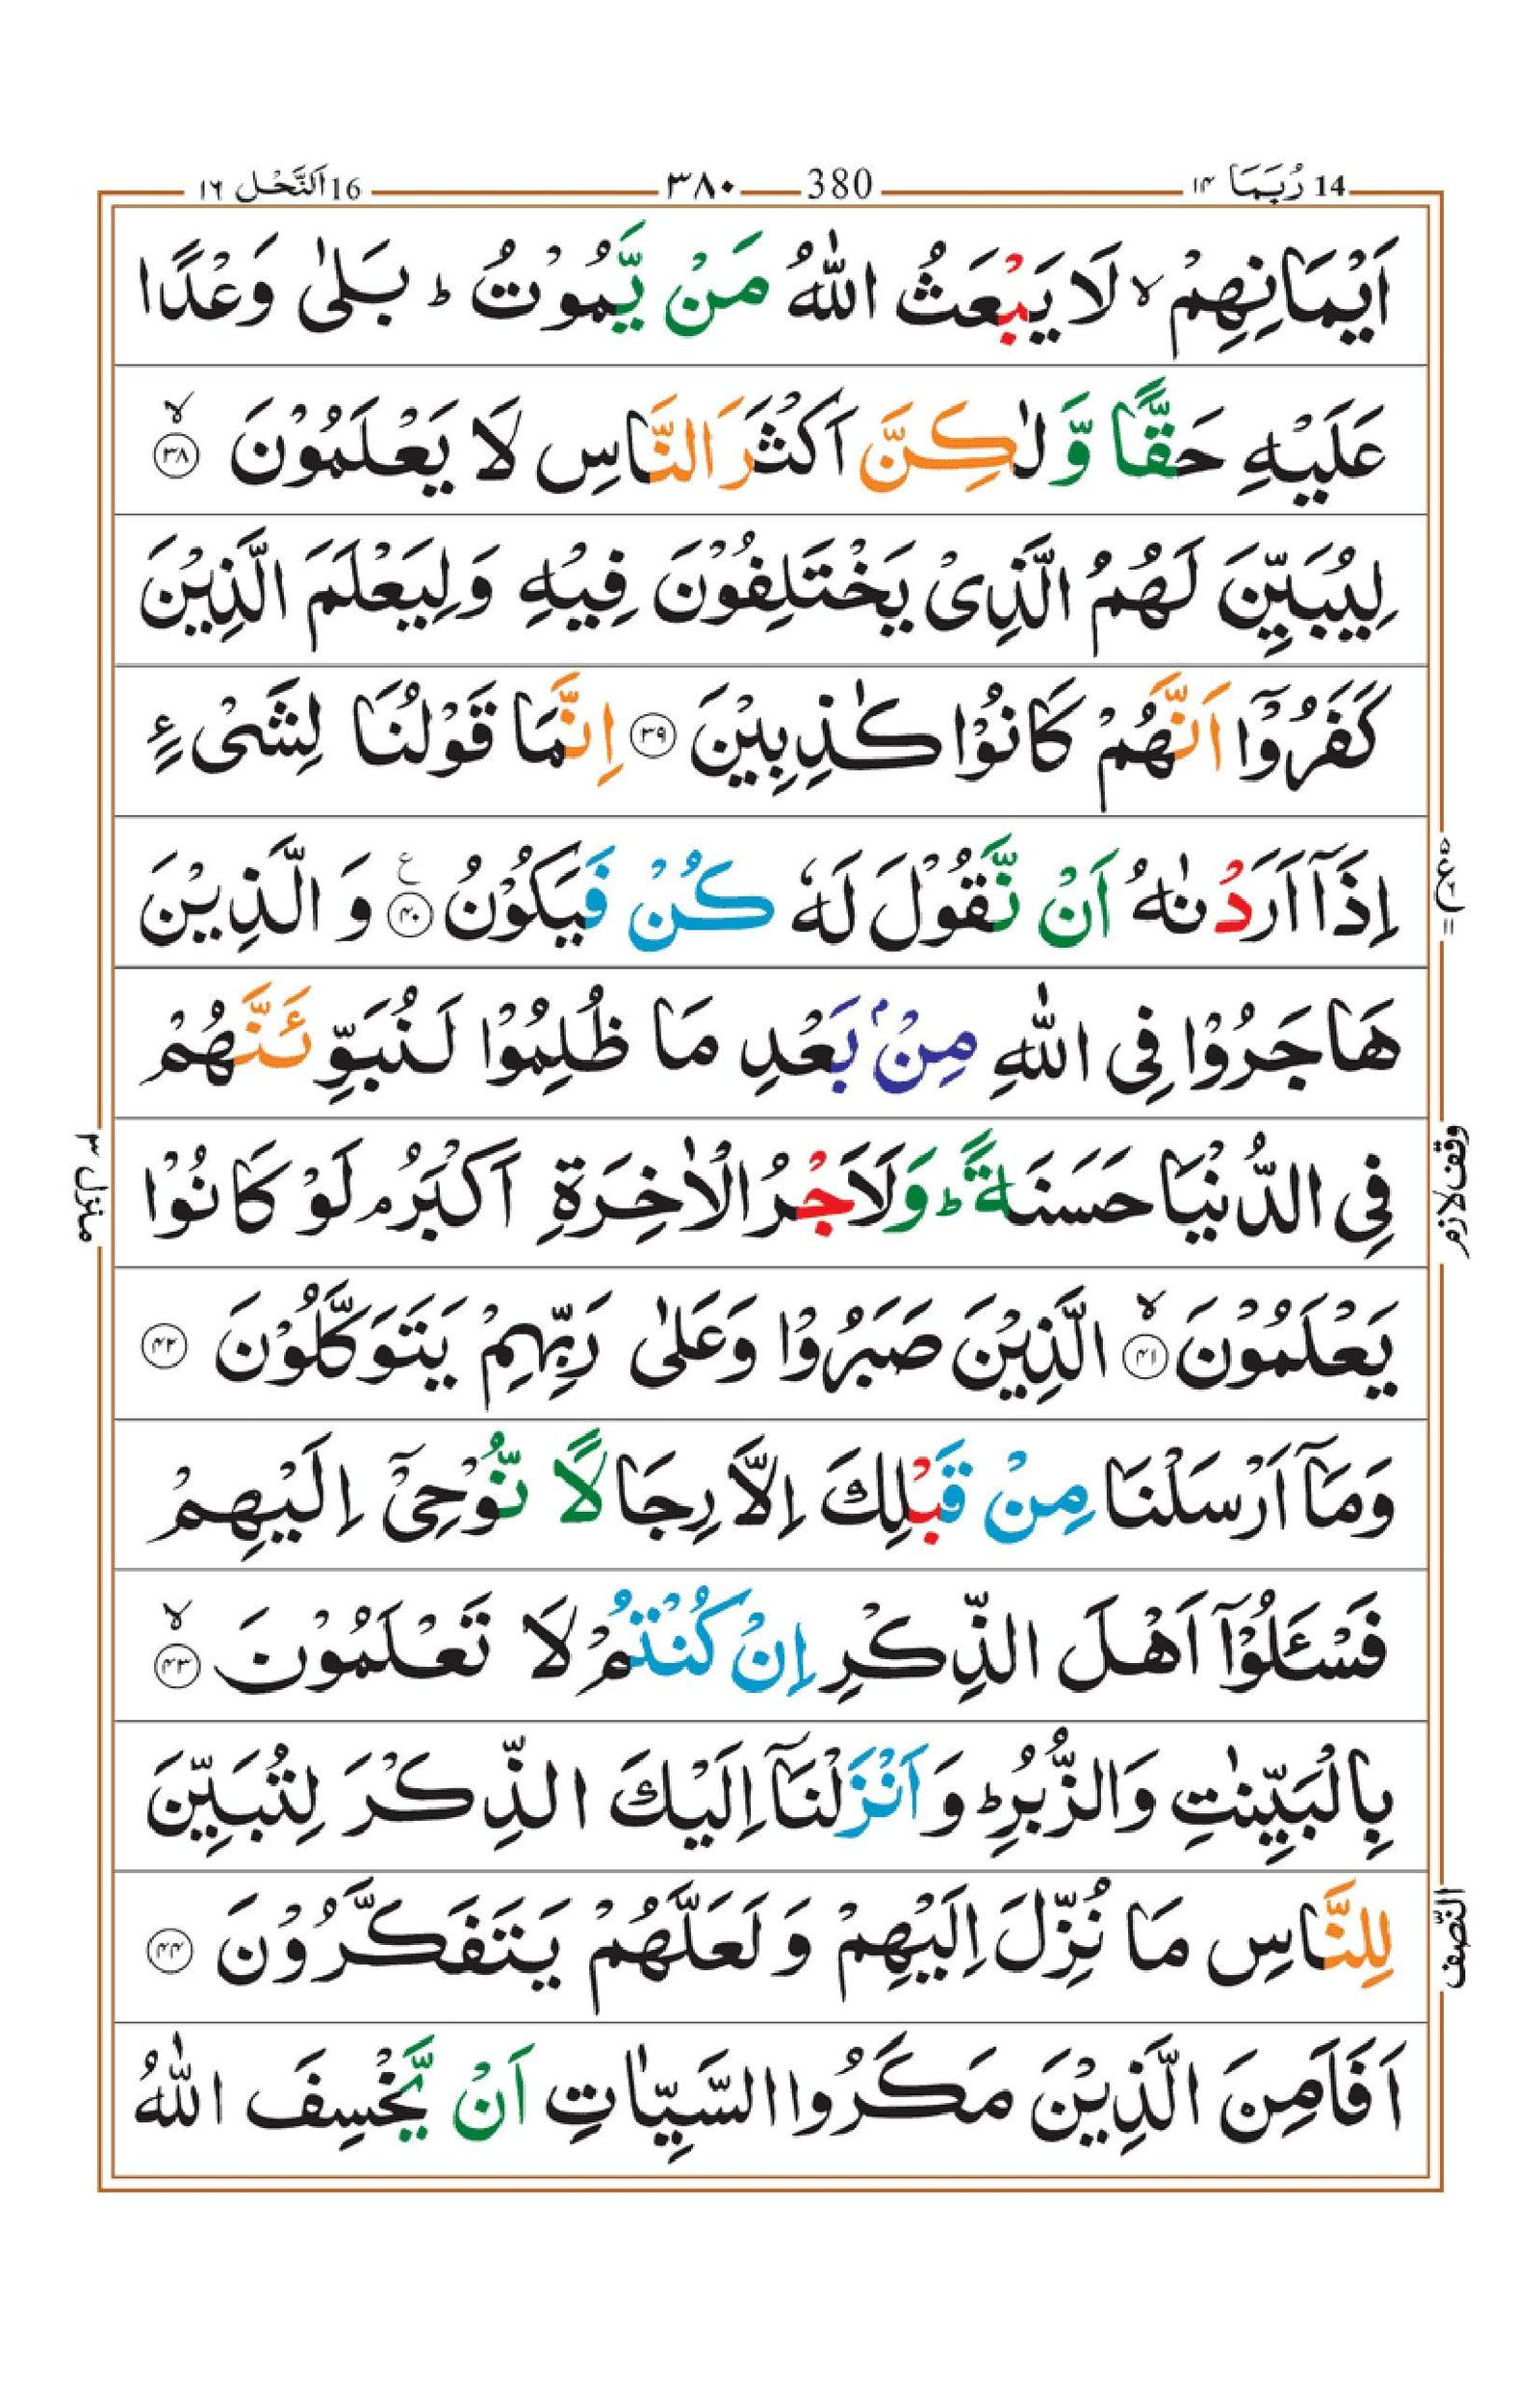 14 رُبَمَا ۱۴
380 ۳۸۰
16 اَلنَّحْل ۱۶
اَيْمَانِهِمْ ۙ لَا يَبْعَثُ اللّٰهُ مَنْ يَّمُوْتُ ؕ بَلٰى وَعْدًا
عَلَيْهِ حَقًّا وَّلٰكِنَّ اَكْثَرَ النَّاسِ لَا يَعْلَمُوْنَ ۙ﴿۳۸﴾
لِيُبَيِّنَ لَهُمُ الَّذِىْ يَخْتَلِفُوْنَ فِيْهِ وَلِيَعْلَمَ الَّذِيْنَ
كَفَرُوْۤا اَنَّهُمْ كَانُوْا كٰذِبِيْنَ ﴿۳۹﴾ اِنَّمَا قَوْلُنَا لِشَىْءٍ
اِذَاۤ اَرَدْنٰهُ اَنْ نَّقُوْلَ لَهٗ كُنْ فَيَكُوْنُ ﴿۴۰﴾ ع وَ الَّذِيْنَ
هَاجَرُوْا فِى اللّٰهِ مِنْۢ بَعْدِ مَا ظُلِمُوْا لَـنُبَوِّئَنَّهُمْ
فِى الدُّنْيَا حَسَنَةً ؕ وَلَاَجْرُ الْاٰخِرَةِ اَكْبَرُ ۘ لَوْ كَانُوْا
يَعْلَمُوْنَ ۙ﴿۴۱﴾ الَّذِيْنَ صَبَرُوْا وَعَلٰى رَبِّهِمْ يَتَوَكَّلُوْنَ ﴿۴۲﴾
وَمَاۤ اَرْسَلْنَا مِنْ قَبْلِكَ اِلَّا رِجَالًا نُّوْحِىْۤ اِلَيْهِمْ
فَسْـَٔلُوْۤا اَهْلَ الذِّكْرِ اِنْ كُنْتُمْ لَا تَعْلَمُوْنَ ۙ﴿۴۳﴾
بِالْبَيِّنٰتِ وَالزُّبُرِ ؕ وَاَنْزَلْنَاۤ اِلَيْكَ الذِّكْرَ لِتُبَيِّنَ
لِلنَّاسِ مَا نُزِّلَ اِلَيْهِمْ وَلَعَلَّهُمْ يَتَفَكَّرُوْنَ ﴿۴۴﴾
اَفَاَمِنَ الَّذِيْنَ مَكَرُوا السَّيِّاٰتِ اَنْ يَّخْسِفَ اللّٰهُ
وقف لازم
النّصف
منزل ۳